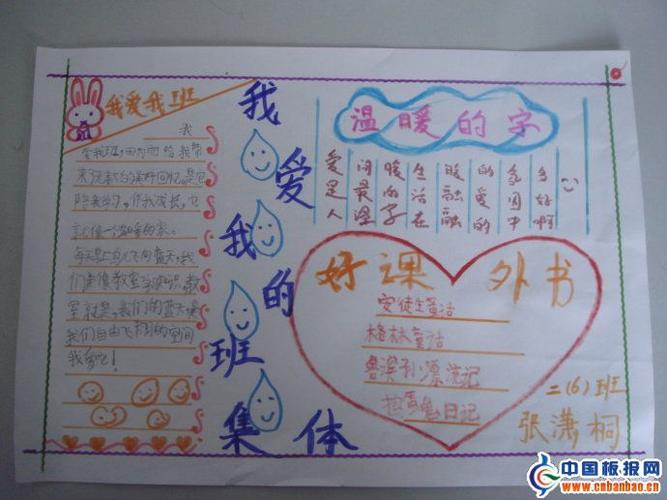 我爱我班
我
爱我班,因为她给我带
来很多的美好回忆,是它
陪我学习,伴我成长,它
就像一个温暖的家。
我
们走进教室学知识,教
室就是我们的蓝天,是
我们自由飞翔的空间
我爱它!
我爱我的班集体
温暖的字
爱是人
间最温
暖的字
生活在
暖融融
的爱的
家园中
多好啊
好课外书
安徒生童话
格林童话
鲁滨孙漂流记
鬼日记
二(6)班
张潇桐
中国板报网
www.cnbanbao.cn